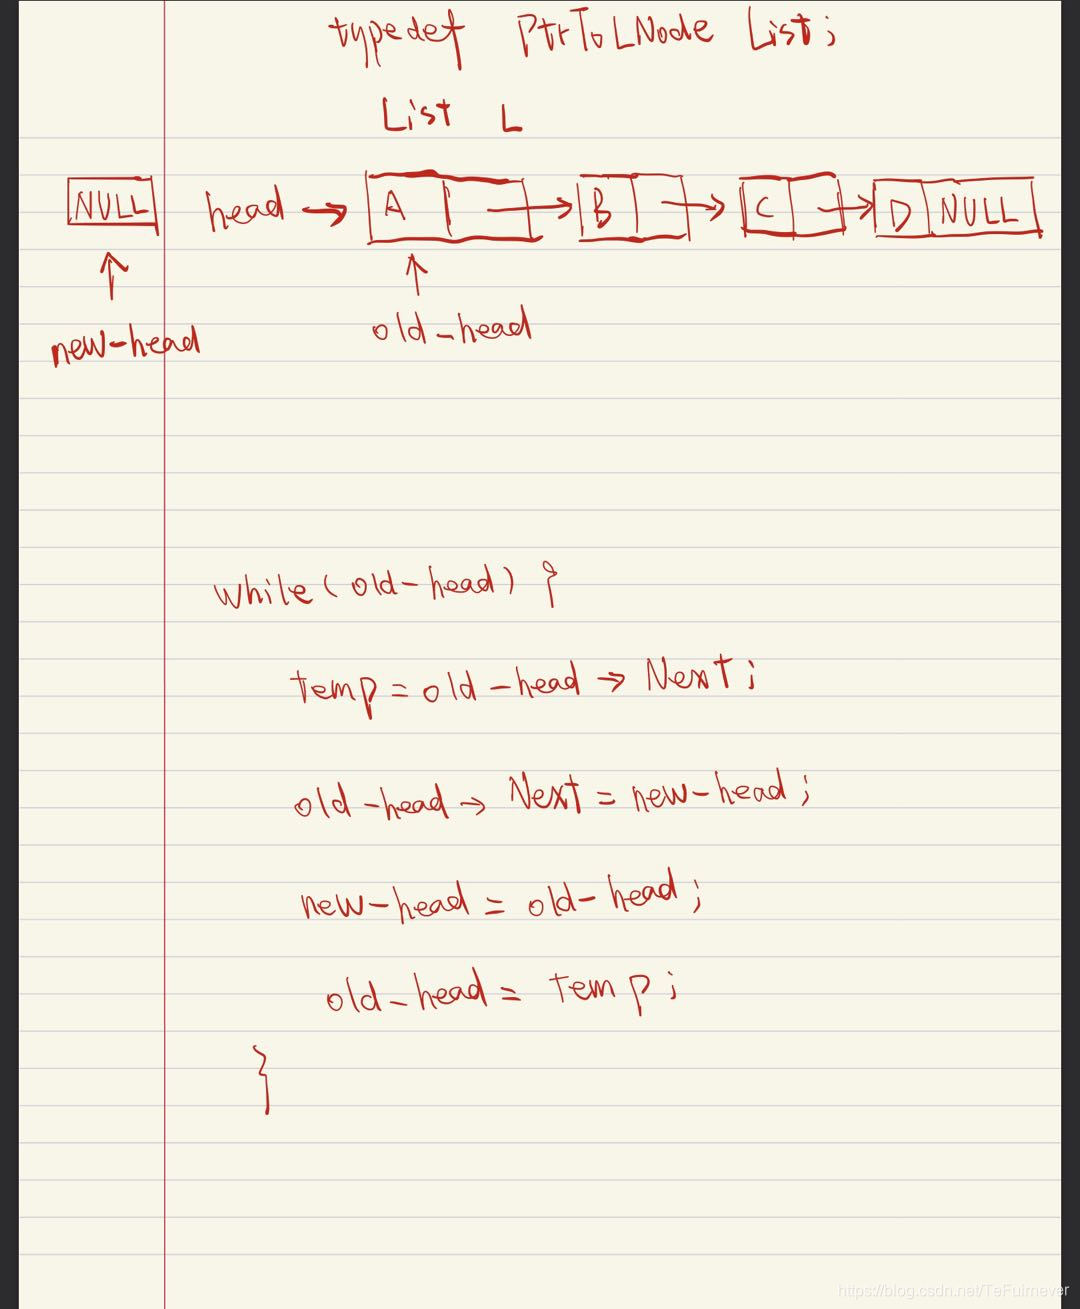 typedef PtrToLNode List;
List L
NULL head → A → B → C → D NULL
new-head old-head
while (old-head) {
temp = old-head → Next;
old-head → Next = new-head;
new-head = old-head;
old-head = temp;
}
https://blog.csdn.net/TeFuirnever